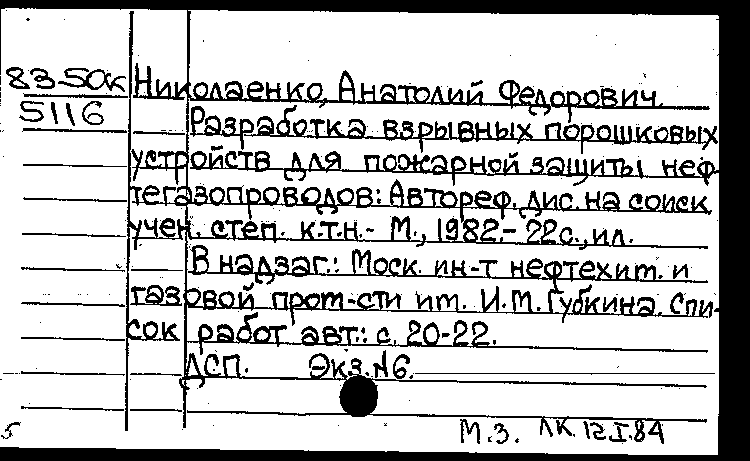 83-50к Николаенко, Анатолий Федорович.
5116 Разработка взрывных порошковых
устройств для пожарной защиты неф-
тегазопроводов: Автореф. дис. на соиск.
учен. степ. к.т.н.- М., 1982.- 22с., ил.
В надзаг.: Моск. ин-т нефтехим. и
газовой пром-сти им. И.М. Губкина. Спи-
сок работ авт.: с. 20-22.
ДСП. Экз. №6.
М.З. ЛК. 12.I.84
5